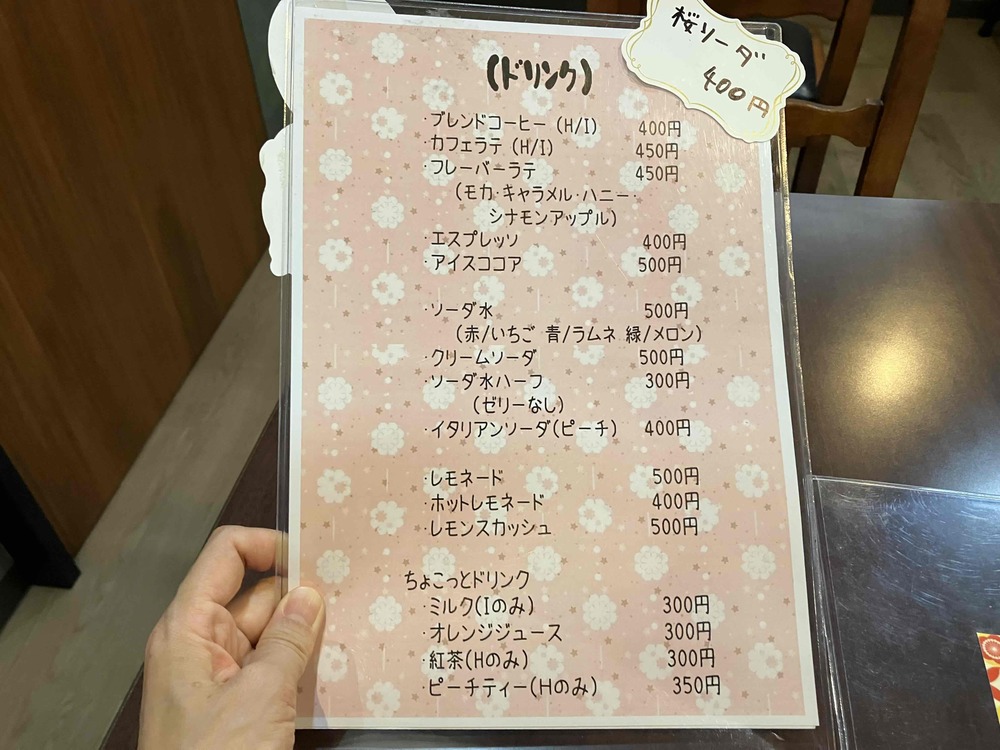 桜ソーダ
400円
(ドリンク)
・ブレンドコーヒー (H/I) 400円
・カフェラテ (H/I) 450円
・フレーバーラテ 450円
(モカ・キャラメル・ハニー・
シナモンアップル)
・エスプレッソ 400円
・アイスココア 500円
・ソーダ水 500円
(赤/いちご 青/ラムネ 緑/メロン)
・クリームソーダ 500円
・ソーダ水ハーフ 300円
(ゼリーなし)
・イタリアンソーダ(ピーチ) 400円
・レモネード 500円
・ホットレモネード 400円
・レモンスカッシュ 500円
ちょこっとドリンク
・ミルク(Iのみ) 300円
・オレンジジュース 300円
・紅茶(Hのみ) 300円
・ピーチティー(Hのみ) 350円